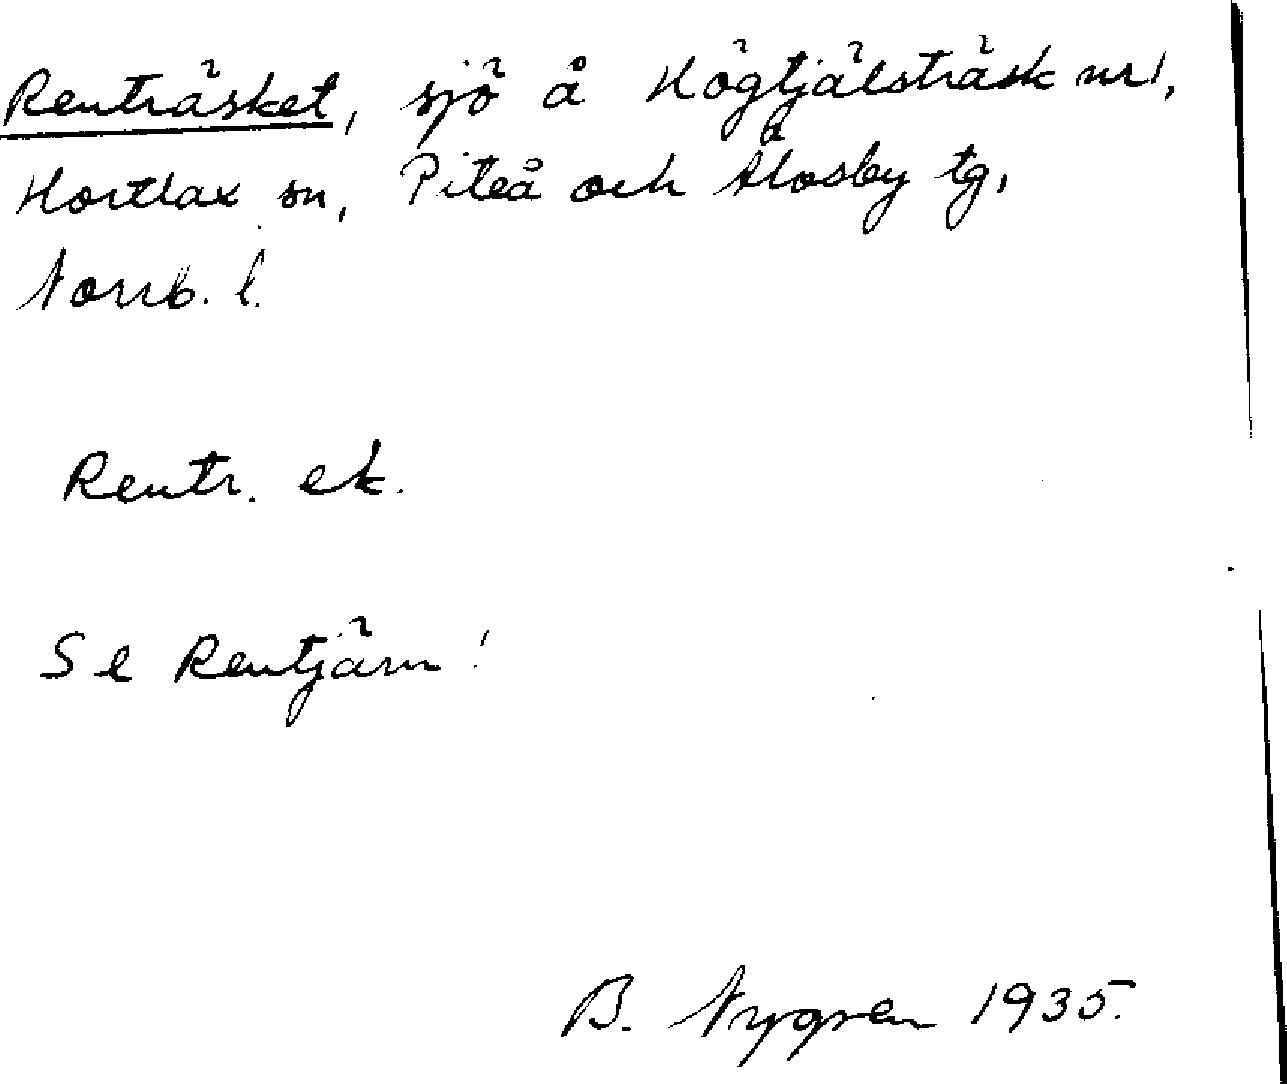 Renträsket, sjö å Högtjälsträsk nr 1,
Hortlax sn, Piteå och Älvsby tg,
Norrb. l.
Rentr. ek.
Se Rentjärn!
B. Nygren 1935.